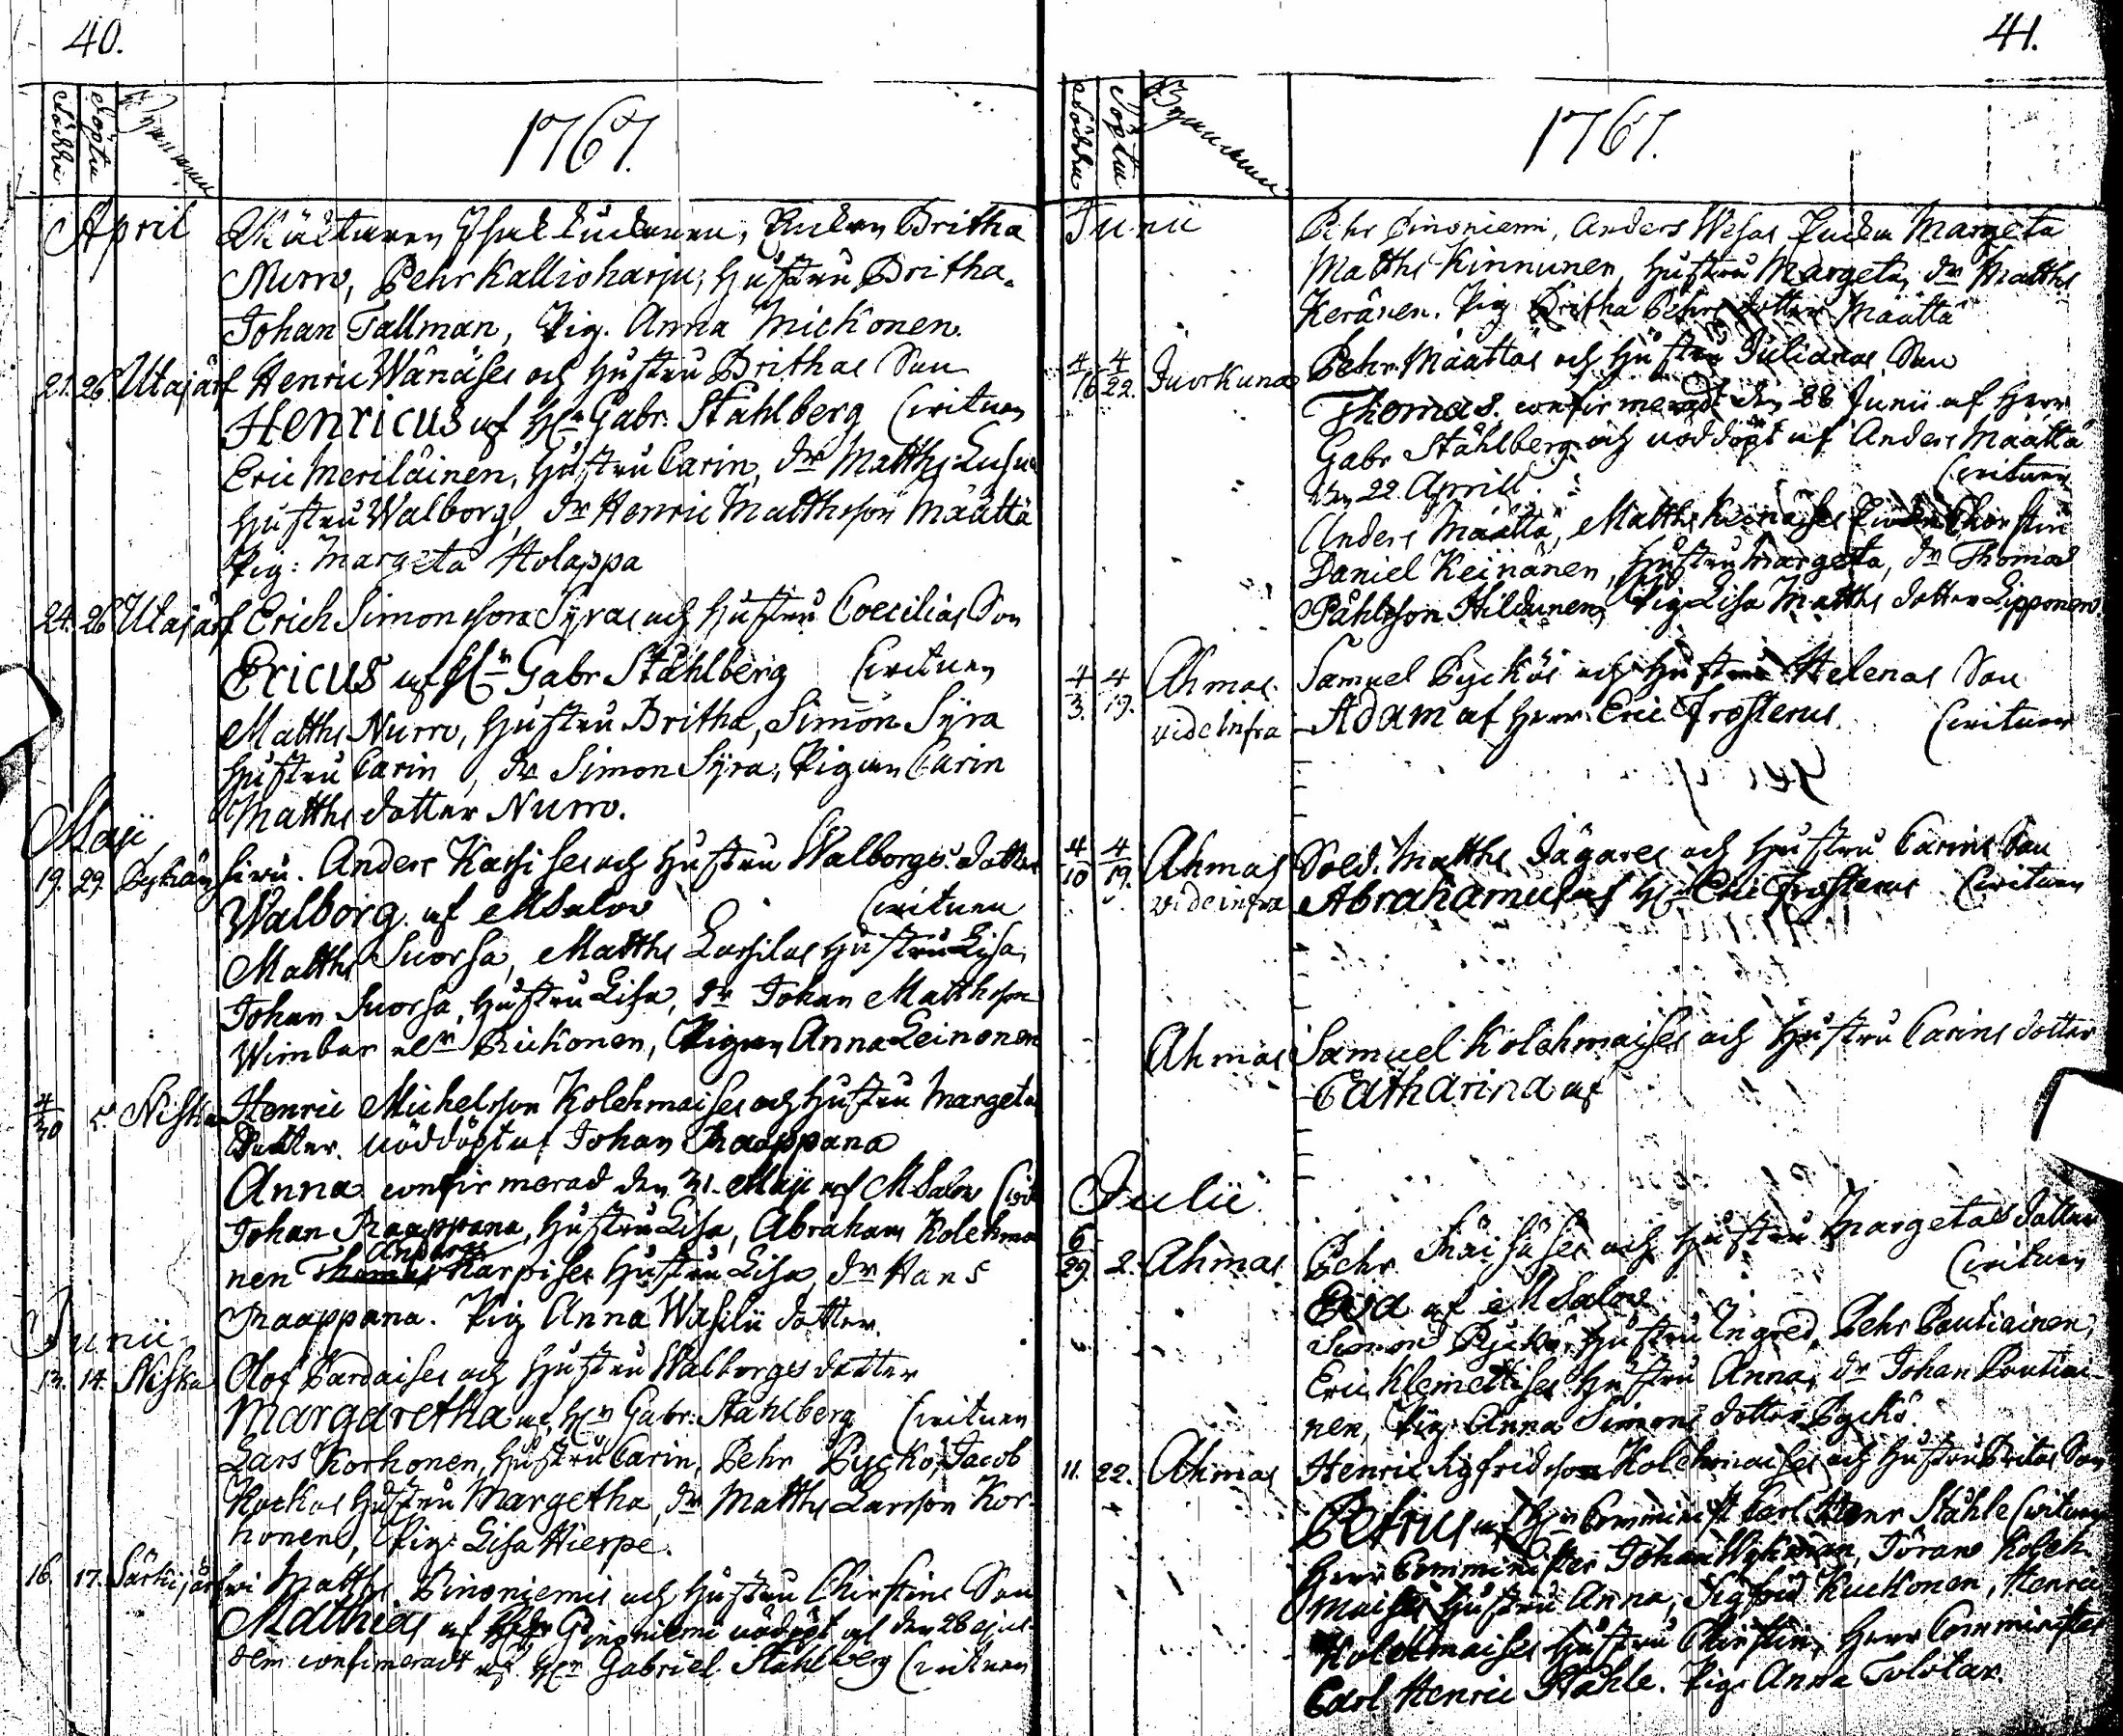 40.
Födde Döpte Byarnamn
1767.
April
Måltaren Isak Luckarin, Enkan Britha
Nurro, Pehr Kallioharju, hustru Britha.
Johan Tallman, Pig. Anna Mickonen.
21. 26. Utajärf Henric Wänäses och hustru Brithas Son
Henricus af Hr Gabr. Ståhlberg Ewittnen
Eric Meriläinen, hustru Carin, dr Matths
hustru Walborg, dr Henric Matthsson Määttä
Pig: Margeta Holappa
24. 26 Utajärf Erich Simonsson Syras och hustru Coecilias Son
Ericus af Hr Gabr Ståhlberg
Matths Nurro, hustru Britha, Simon Syra
hustru Carin, dr Simon Syra, Pigan Carin
Matths dotter Nurro.
Maji
19. 29. Anders Karhises och hustru Walborgs dotter
Walborg af M Salov
Matths Suorsa, Matths Lassilas hustru Lisa,
Johan Suorsa, hustru Lisa, dr Johan Matthsson
Wimbar Pigan Anna Leinonen
4/30 5. Niska Henric Michelsson Kolehmaises och hustru Margetas
dotter. nöddöpt af Johan Raappana
Anna confirmerad den 31. Maji af M Salov
Johan Raappana, hustru Lisa, Abraham Kolehmai
Anders
nen Thomas Karpises hustru Lisa, dr Hans
Raappana. Pig Anna Wasilii dotter.
Junii
13. 14. Niska Olof Pardaises och hustru Walborgs dotter
Margaretha af Hr Gabr: Ståhlberg
Lars Korhonen, hustru Carin, Pehr Pyckö, Jacob
hustru Margetha, dr Matths Larsson Kor-
honen, Pig: Lisa Hierpe.
16. 17. Särkijärfvi Matths Pinoniemis och hustru Chirstins Son
Matthias af Pehr Pinoniemi nöddöpt och den 26 ejus-
dem confirmerat af Hr Gabriel Ståhlberg
41.
Födde Döpte Byarnamn
1767.
Junii
Pehr Pinoniemi, Anders Wesas Enka Margeta
Matths Kinnunen, hustru Margeta, dr Matths
Keränen. Pig Britha Pehrs dotter Määttä
4/16 4/22. Juorkuna Pehr Määttas och hustru Julianas Son
Thomas. confirmeradt den 28 Junii af Herr
Gabr Ståhlberg och nöddöpt af Anders Määttä
den 22 Aprill.
Anders Määttä, Matths
Daniel Keinänen, hustru Margeta, dr Thomas
Påhlsson Hildunen, Pig Lisa Matths dotter Lipponen
4/3. 4/19. Ahmas Samuel Pyckös och hustru Helenas Son
vide infra Adam af Herr Eric Frosterus.
4/10 4/19. Ahmas Sold. Matths Jägares och hustru Carins Son
vide infra Abrahamus af Hr Eric Frosterus
Ahmas Samuel Kolehmaises och hustru Carins dotter
Catharina af
Julii
6/29. 2. Ahmas Pehr och hustru Margetas dotter
Eva af M Salov
Simon Pyckö, hustru Ingred, Pehr Pautiainen,
Eric Klemettises hustru Anna, dr Johan Pautiai-
nen, Pig: Anna Simons dotter Pyckö.
11. 22. Ahmas Henric Sigfridsson Kolehmaises och hustru Britas Son
Petrus af Hr Comminist Carl Henr Ståhle
Herr Comminister Johan Wykman, Jöran Koleh-
maises hustru Anna, Sigfrid Kuckonen, Henric
Kolehmaises hustru Chirstin, Herr Comminister
Carl Henric Ståhle. Pig: Anna Tolotar.